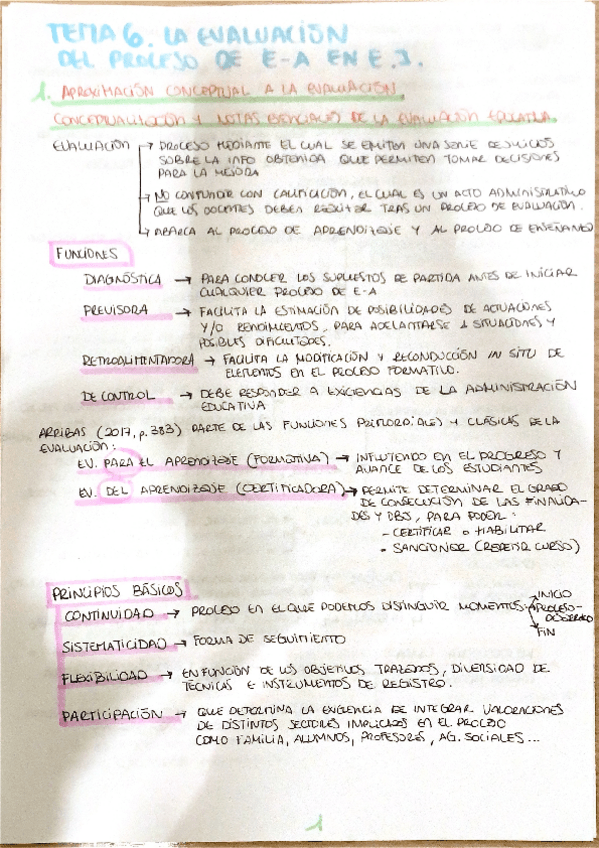 TEMA 6. LA EVALUACIÓN
DEL PROCESO DE E-A EN E.I.
1. APROXIMACIÓN CONCEPTUAL A LA EVALUACIÓN.
CONCEPTUALIZACIÓN Y NOTAS ESENCIALES DE LA EVALUACIÓN EDUCATIVA.
EVALUACIÓN → PROCESO MEDIANTE EL CUAL SE EMITEN UNA SERIE DE JUICIOS
SOBRE LA INFO OBTENIDA QUE PERMITEN TOMAR DECISIONES
PARA LA MEJORA
→ NO CONFUNDIR CON CALIFICACIÓN, EL CUAL ES UN ACTO ADMINISTRATIVO
QUE LOS DOCENTES DEBEN REALIZAR TRAS UN PROCESO DE EVALUACIÓN.
→ ABARCA AL PROCESO DE APRENDIZAJE Y AL PROCESO DE ENSEÑANZA
FUNCIONES
DIAGNÓSTICA → PARA CONOCER LOS SUPUESTOS DE PARTIDA ANTES DE INICIAR
CUALQUIER PROCESO DE E-A
PREVISORA → FACILITA LA ESTIMACIÓN DE POSIBILIDADES DE ACTUACIONES
Y/O RENDIMIENTOS, PARA ADELANTARSE A SITUACIONES Y
POSIBLES DIFICULTADES.
RETROALIMENTADORA → FACILITA LA MODIFICACIÓN Y RECONDUCCIÓN IN SITU DE
ELEMENTOS EN EL PROCESO FORMATIVO.
DE CONTROL → DEBE RESPONDER A EXIGENCIAS DE LA ADMINISTRACIÓN
EDUCATIVA
ARRIBAS (2017, p.383) PARTE DE LAS FUNCIONES PRIMORDIALES Y CLÁSICAS DE LA
EVALUACIÓN:
EV. PARA EL APRENDIZAJE (FORMATIVA) → INFLUYENDO EN EL PROGRESO Y
AVANCE DE LOS ESTUDIANTES
EV. DEL APRENDIZAJE (CERTIFICADORA) → PERMITE DETERMINAR EL GRADO
DE CONSECUCIÓN DE LAS FINALIDA-
DES Y OBJ, PARA PODER:
- CERTIFICAR O HABILITAR
- SANCIONAR (REPETIR CURSO)
PRINCIPIOS BÁSICOS
CONTINUIDAD → PROCESO EN EL QUE PODEMOS DISTINGUIR MOMENTOS: → INICIO
→ PROCESO-
DESARROLLO
→ FIN
SISTEMATICIDAD → FORMA DE SEGUIMIENTO
FLEXIBILIDAD → EN FUNCIÓN DE LOS OBJETIVOS TRAZADOS, DIVERSIDAD DE
TÉCNICAS E INSTRUMENTOS DE REGISTRO.
PARTICIPACIÓN → QUE DETERMINA LA EXIGENCIA DE INTEGRAR VALORACIONES
DE DISTINTOS SECTORES IMPLICADOS EN EL PROCESO
COMO FAMILIA, ALUMNOS, PROFESORES, AG. SOCIALES...
1